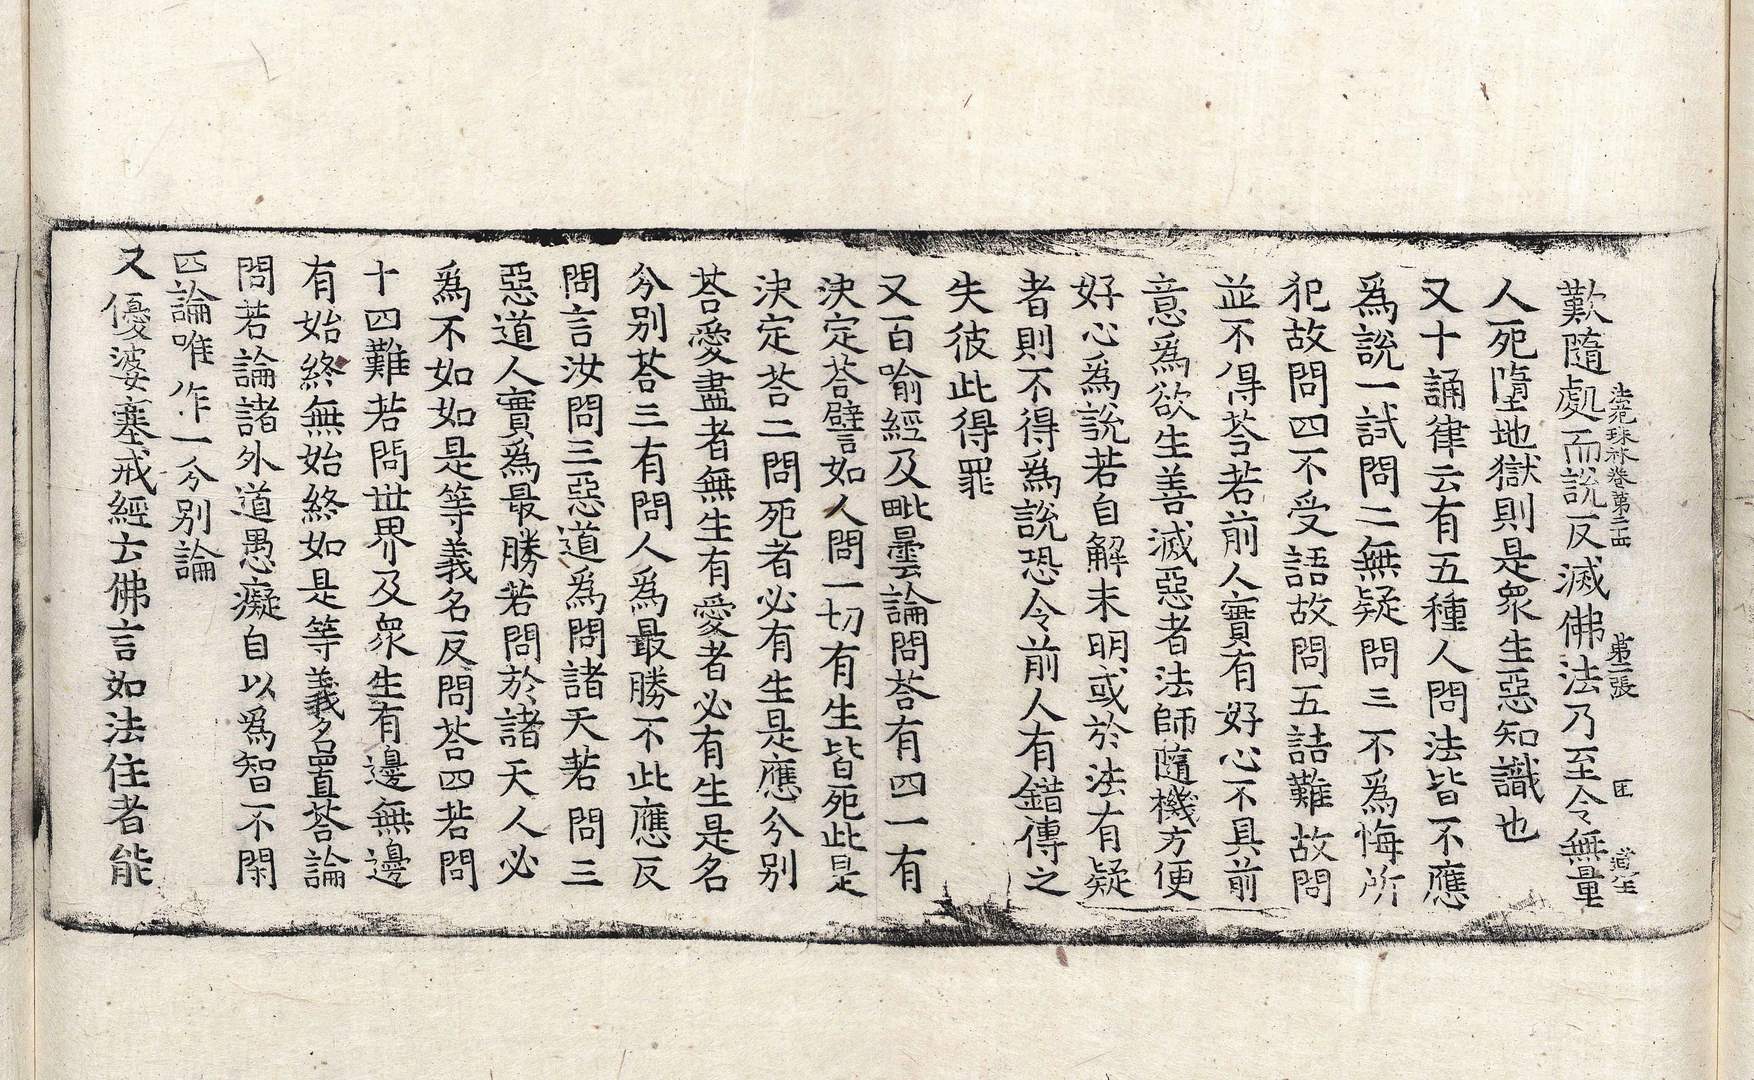 法苑珠林卷第二四 第二張 匡
歎隨處而說反滅佛法乃至令無量
人死墮地獄則是衆生惡知識也
又十誦律云有五種人問法皆不應
爲說一試問二無疑問三不爲悔所
犯故問四不受語故問五詰難故問
並不得荅若前人實有好心不具前
意爲欲生善滅惡者法師隨機方便
好心爲說若自解未明或於法有疑
者則不得爲說恐令前人有錯傳之
失彼此得罪
又百喻經及毗曇論問荅有四一有
決定荅譬如人問一切有生皆死此是
決定荅二問死者必有生是應分別
荅愛盡者無生有愛者必有生是名
分別荅三有問人爲最勝不此應反
問言汝問三惡道爲問諸天若問三
惡道人實爲最勝若問於諸天人必
爲不如如是等義名反問荅四若問
十四難若問世界及衆生有邊無邊
有始終無始終如是等義名置荅論
問若論諸外道愚癡自以爲智不閑
四論唯作一分別論
又優婆塞戒經云佛言如法住者能